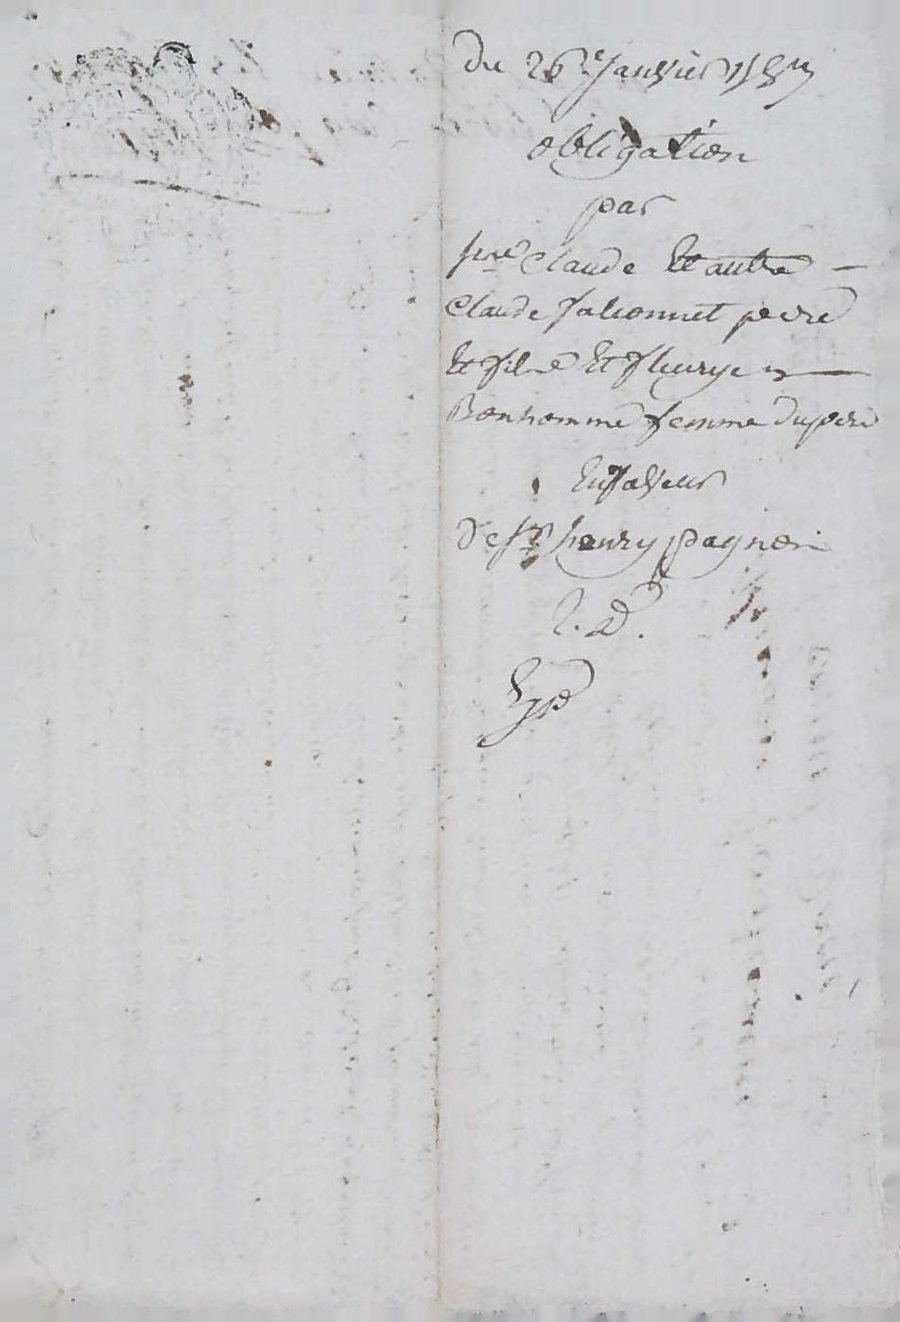 du 26e Janvier
obligation
par
sre Claude Et autre
Claude falconnet pere
Et fils Et fleurye
Bonhomme femme du pere
En faveur
de sr henry pagnon
Exp